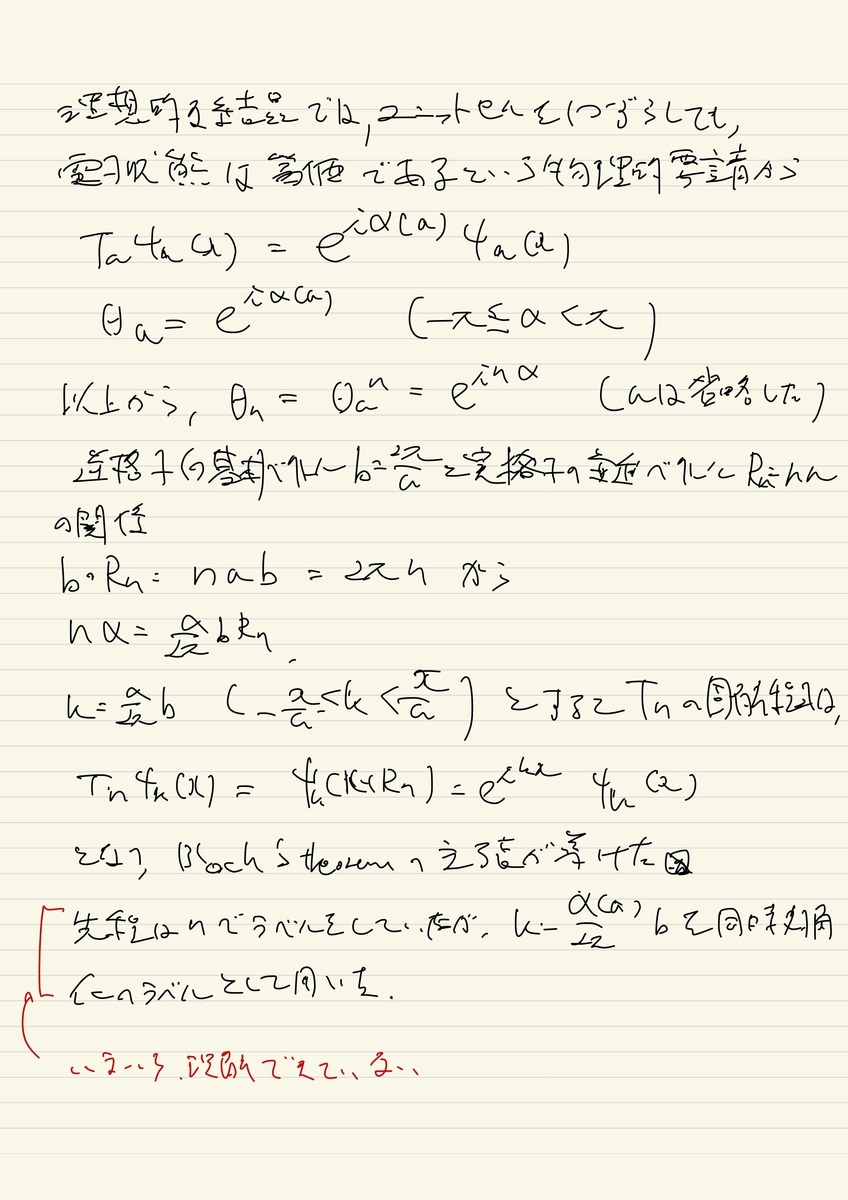 理想的な結晶では,ユニットセルを1つずらしても,
電子状態は等価であるという物理的要請から
Ta ψn(x) = e^{iα(a)} ψn(x)
θa = e^{iα(a)} (-π≦α<π)
以上から, θn = θa^n = e^{inα} (aは省略した)
逆格子の基本ベクトル b=2π/a と実格子の並進ベクトル Rn=na
の関係
b・Rn = nab = 2πn から
nα = α/2π bRn.
k = α/2π b (-π/a ≦ k < π/a) とすると Tn の固有方程式は,
Tn ψk(x) = ψk(x+Rn) = e^{ikx} ψk(x)
となり, Bloch's theorem の主張が導けた
先程は n でラベルをしていたが, k = α(a)/2π b を同時対角
化のラベルとして用いた.
いまいち理解できていない